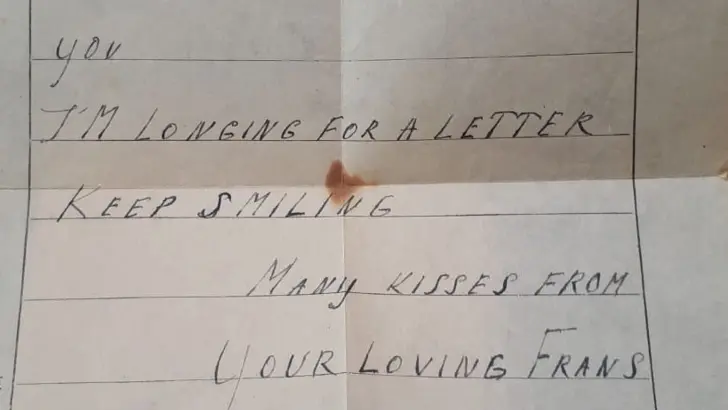 you
I'M LONGING FOR A LETTER
KEEP SMILING
MANY KISSES FROM
YOUR LOVING FRANS